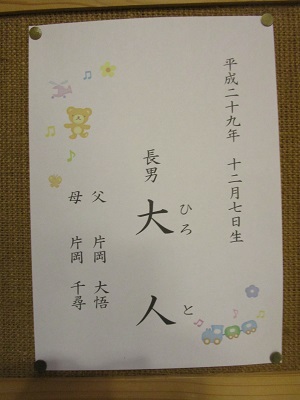 平成二十九年 十二月七日生
長男 大人
ひろ と
父 片岡 大悟
母 片岡 千尋